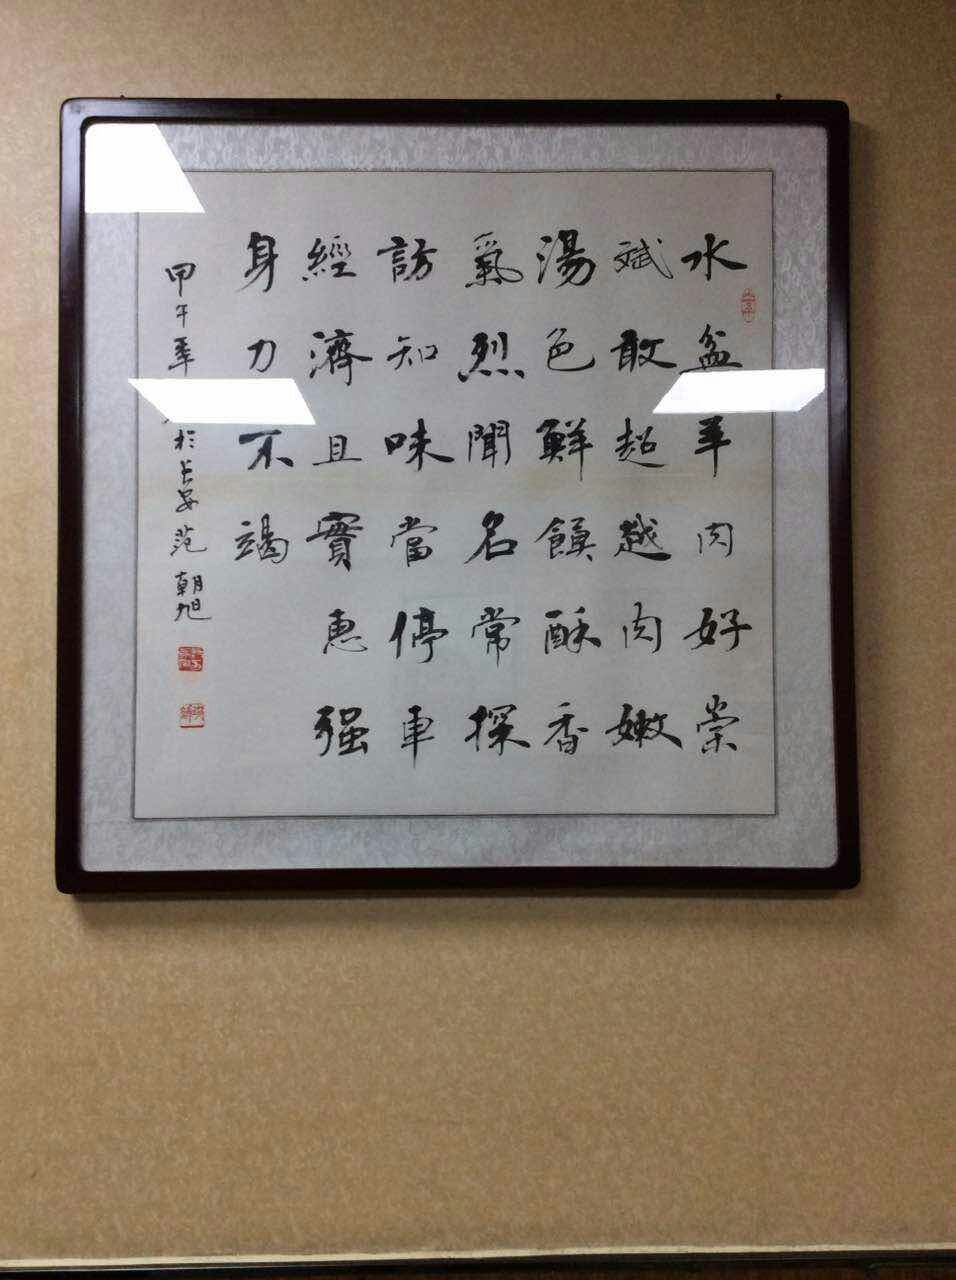 水盆羊肉好崇
斌敢超越肉嫩
湯色鮮饌酥香
氣烈聞名常探
訪知味當停車
經濟且實惠强
身力不竭
甲午季於長安范朝旭